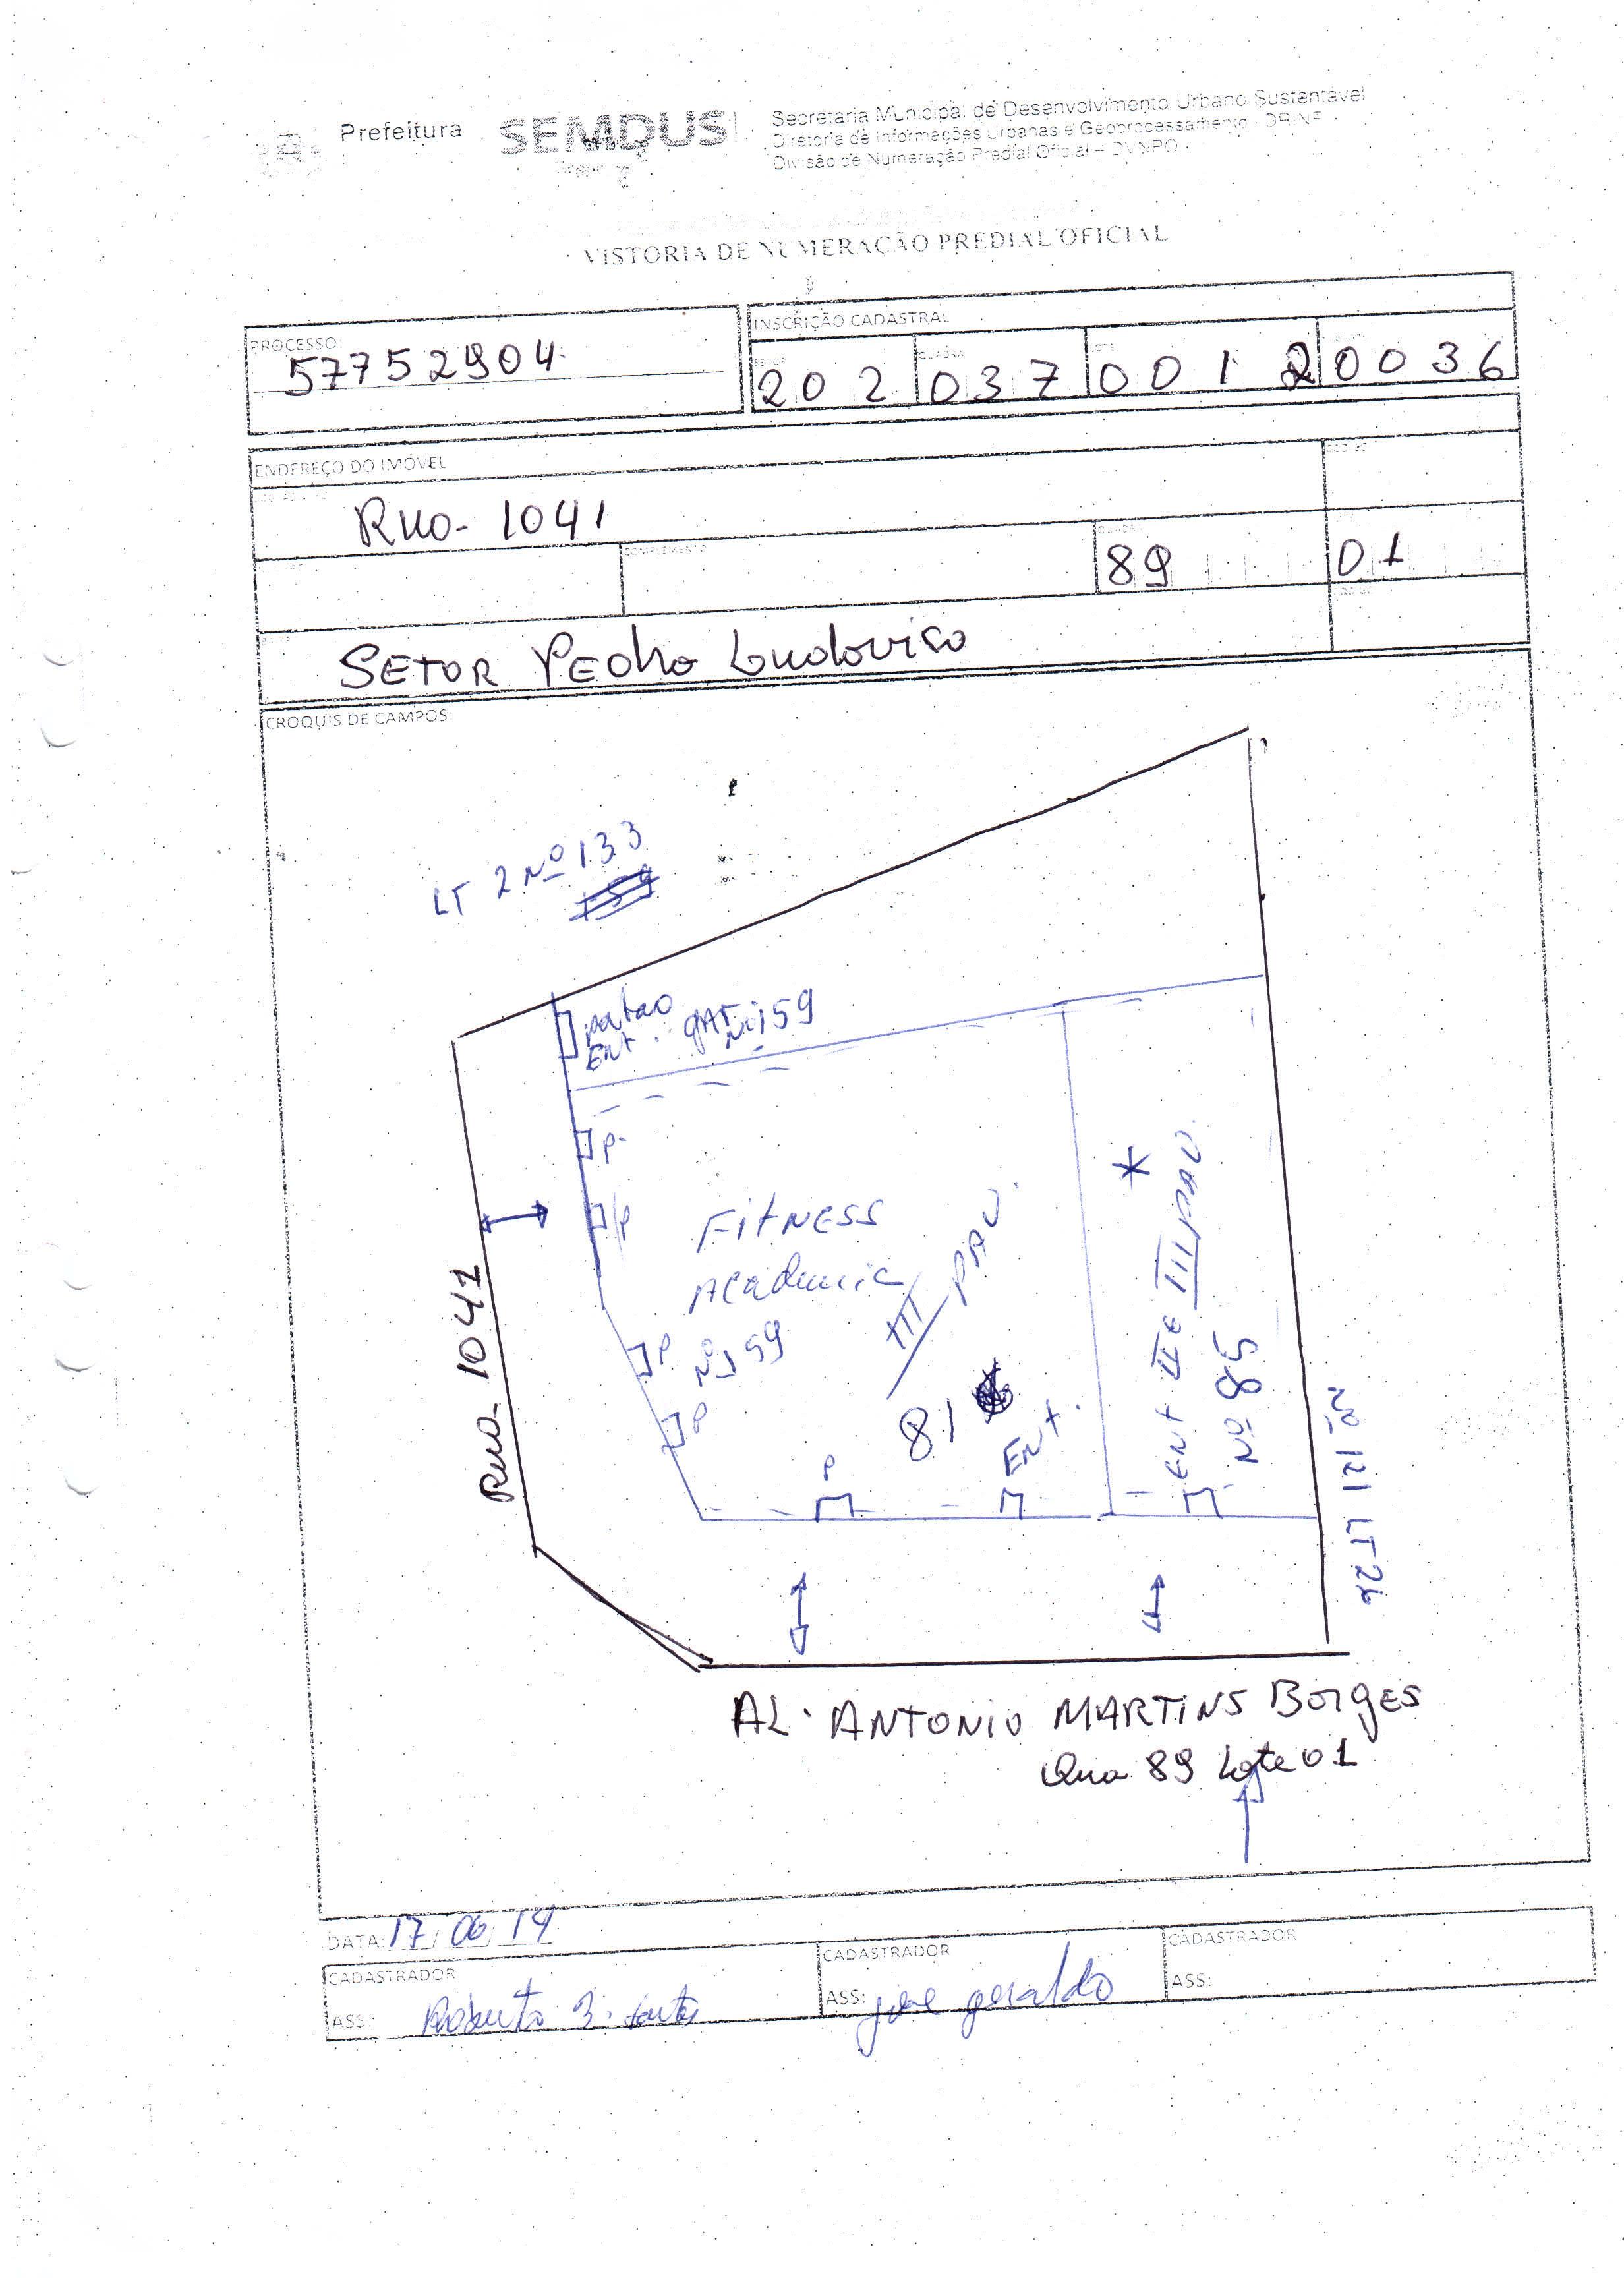 Prefeitura
SEMDUS
Secretaria Municipal de Desenvolvimento Urbano Sustentável
Diretoria de Informações Urbanas e Geoprocessamento - DRINF
Divisão de Numeração Predial Oficial – DVNPO
VISTORIA DE NUMERAÇÃO PREDIAL OFICIAL
PROCESSO:
57752904
INSCRIÇÃO CADASTRAL
SETOR
QUADRA
LOTE
202 037 0012 0036
ENDEREÇO DO IMÓVEL
Rua 1041
COMPLEMENTO
QUADRA
89
01
SETOR Pedro Ludovico
CROQUIS DE CAMPOS:
LT 2 Nº 133
Ent.
Nº 159
P
P
FITNESS
Academia
Nº 159
III PAV.
P
P
P
81
Ent.
*
ENT II E III PAV
Nº 85
Nº 121 LT 26
Rua 1041
AL. ANTONIO MARTINS Borges
Qua 89 Lote 01
DATA: 17/06/14
CADASTRADOR
ASS:
Roberto
CADASTRADOR
ASS: jose geraldo
CADASTRADOR
ASS: